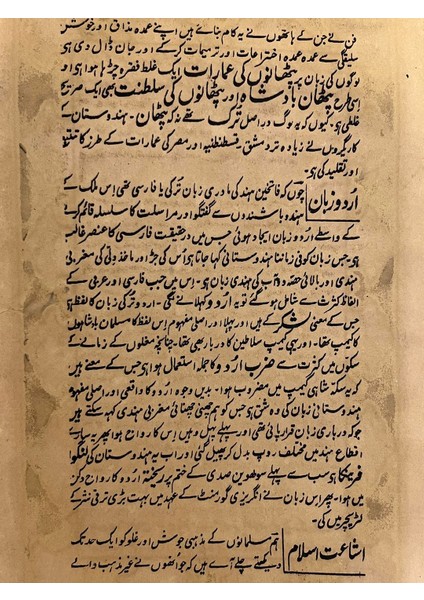 فن نے جن کے ہاتھوں نے یہ کام بنائے ہیں اپنے عمدہ مذاق اور خوش
سلیقگی سے عمدہ عمدہ اختراعات اور ترمیمات کرکے اور جان ڈال دی ہو
لوگوں کی زبان پر پٹھانوں کی عمارات ایک غلط فقرہ چڑھا ہوا ہو او
اسی طرح پٹھان بادشاہ اور پٹھانوں کی سلطنت بھی ایک صریح
غلطی ہو۔ کیوں کہ یہ لوگ دراصل ترک تھے نہ کہ پٹھان۔ ہندوستان کے
کاریگروں نے زیادہ تر دمشق۔ قسطنطنیہ اور مصر کی عمارات کے طرز کا تتبع
اور تقلید کی ہو۔
اُردو زبان چوں کہ فاتحین ہند کی مادری زبان ترکی یا فارسی تھی اس ملک کے
ہندو باشندوں سے گفتگو اور مراسلت کا سلسلہ قائم کرنے
کے واسطے اُردو زبان ایجاد ہوئی جس میں درحقیقت فارسی کا عنصر غالب
ہو جس زبان کو فی زماننا ہندوستانی کہا جاتا ہو اُس کی جڑ اور ماخذ دلّی کی مغربی
ہندی اور بالائی حصہ دوآب کی ہندی زبان ہو۔ اس میں جب فارسی اور عربی کے
الفاظ کثرت سے شامل ہوگئے تو یہ اُردو کہلانے لگی۔ اردو ترکی زبان کا لفظ ہو
جس کے معنی لشکر کے ہیں اور پہلا اور اصلی مفہوم اِس لفظ کا مسلمان بادشاہوں
کا کیمپ تھا۔ اور یہی کیمپ سلاطین کا دربار بھی تھا۔ چنانچہ مغلوں کے زمانے کے
سکوں میں کثرت سے ضرب اُردو کا جملہ استعمال ہوا ہو جس کے معنے ہیں
کہ یہ سکہ شاہی کیمپ میں مضروب ہوا۔ بدیں وجوہ اُردو کا واقعی اور اصلی مفہوم
ہندوستانی زبان کی وہ شق ہو جس کو ہم چھنی چھنائی مغربی ہندی کہہ سکتے ہیں
جو کہ درباری زبان قرار پائی تھی اور پہلے پہل وہیں اِس کا رواج ہوا پھر یہ سارے
اقطاع ہند میں مختلف روپ بدل کر پھیل گئی اور اب یہ ہندوستان کی لنگوا
فرینکا ہو سب سے پہلے سولھویں صدی کے ختم پر ریختہ اُردو کا رواج دکن
میں ہوا۔ پھر اس زبان نے انگریزی گورنمنٹ کے عہد میں بہت بڑی ترقی نثر کے
لٹریچر میں کی۔
اشاعت اسلام ہم مسلمانوں کے مذہبی جوش اور غلو کو ایک حد تک
دیکھتے چلے آئے ہیں کہ جو اُنھوں نے غیر مذہب والے